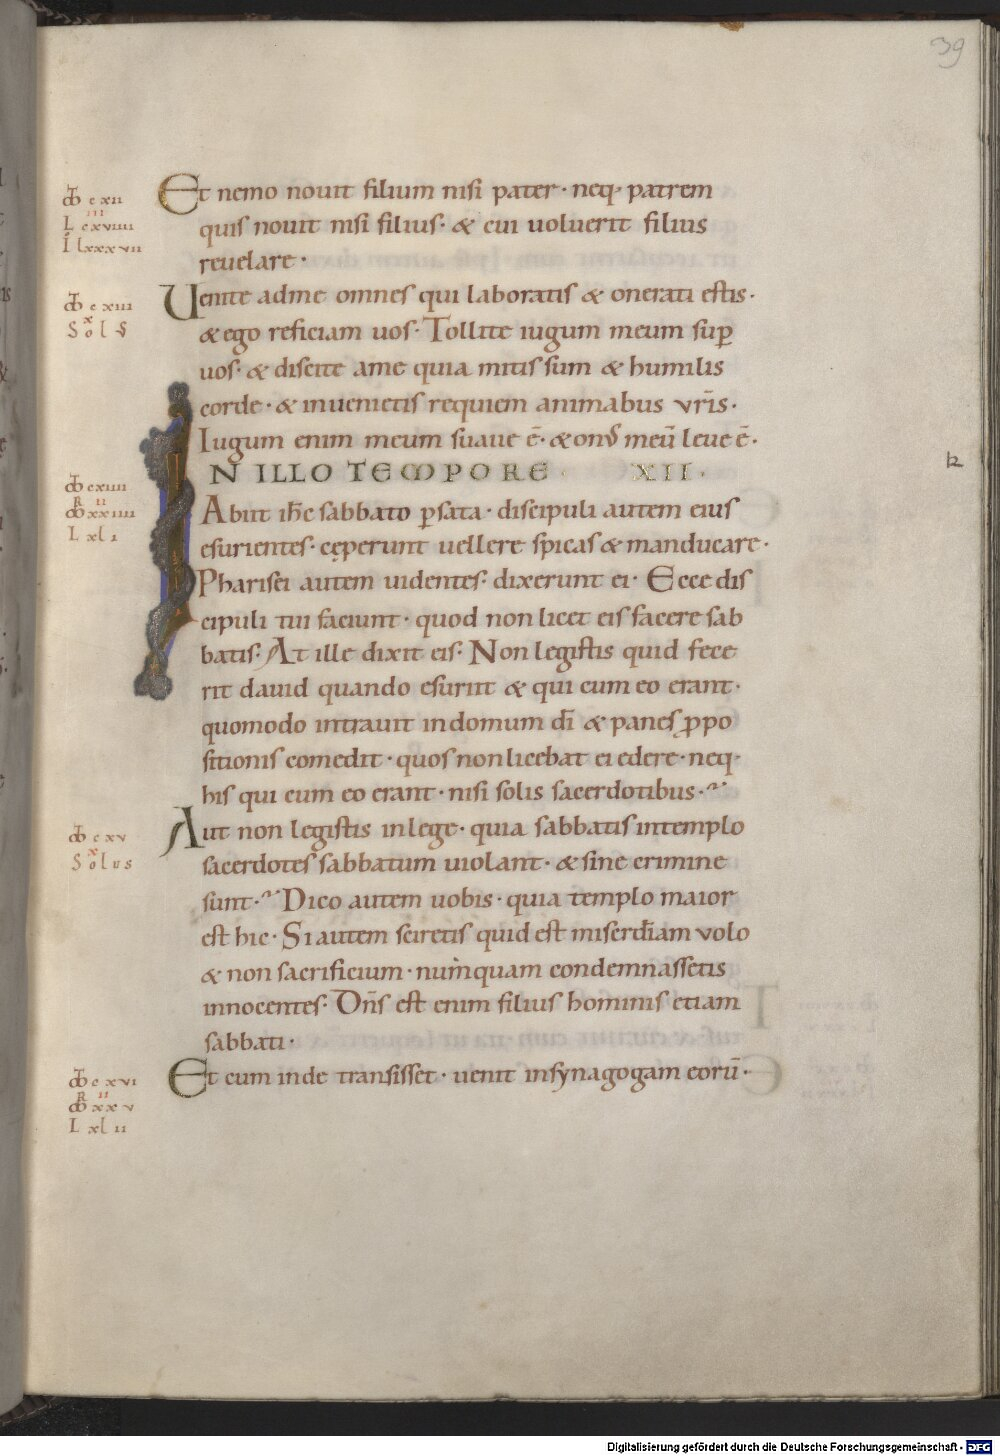 39
Et nemo nouit filium nisi pater · neq· patrem
quis nouit nisi filius· & cui uoluerit filius
reuelare ·
Uenite adme omnes qui laboratis & onerati estis·
& ego reficiam uos· Tollite iugum meum sup̄
uos· & discite ame quia mitis sum & humilis
corde · & inuenietis requiem animabus vr̄is·
Iugum enim meum suaue ē· & on̄ meū leue ē·
IN ILLO TEMPORE · XII ·
Abiit ih̄c sabbato p̄ sata · discipuli autem eius
esurientes· cęperunt uellere spicas & manducare·
Pharisei autem uidentes· dixerunt ei· Ecce dis
cipuli tui faciunt· quod non licet eis facere sab
batis· At ille dixit eis· Non legistis quid fece
rit dauid quando esuriit & qui cum eo erant·
quomodo intrauit in domum dī & panes ꝓpo
sitionis comedit · quos non licebat ei edere· neq·
his qui cum eo erant· nisi solis sacerdotibus·
Aut non legistis in lege· quia sabbatis in templo
sacerdotes sabbatum uiolant· & sine crimine
sunt· Dico autem uobis· quia templo maior
est hic· Si autem sciretis quid est miserd̄iam volo
& non sacrificium· numquam condemnassetis
innocentes· Dn̄s est enim filius hominis etiam
sabbati·
Et cum inde transisset· uenit in synagogam eorū·
c xii
iii
L cxviiii
I lxxxvii
c xiii
x
Sol S
cxiiii
R ii
xxiiii
L xli
c xv
x
Solus
c xvi
R ii
xxv
L xlii
12
Digitalisierung gefördert durch die Deutsche Forschungsgemeinschaft - DFG